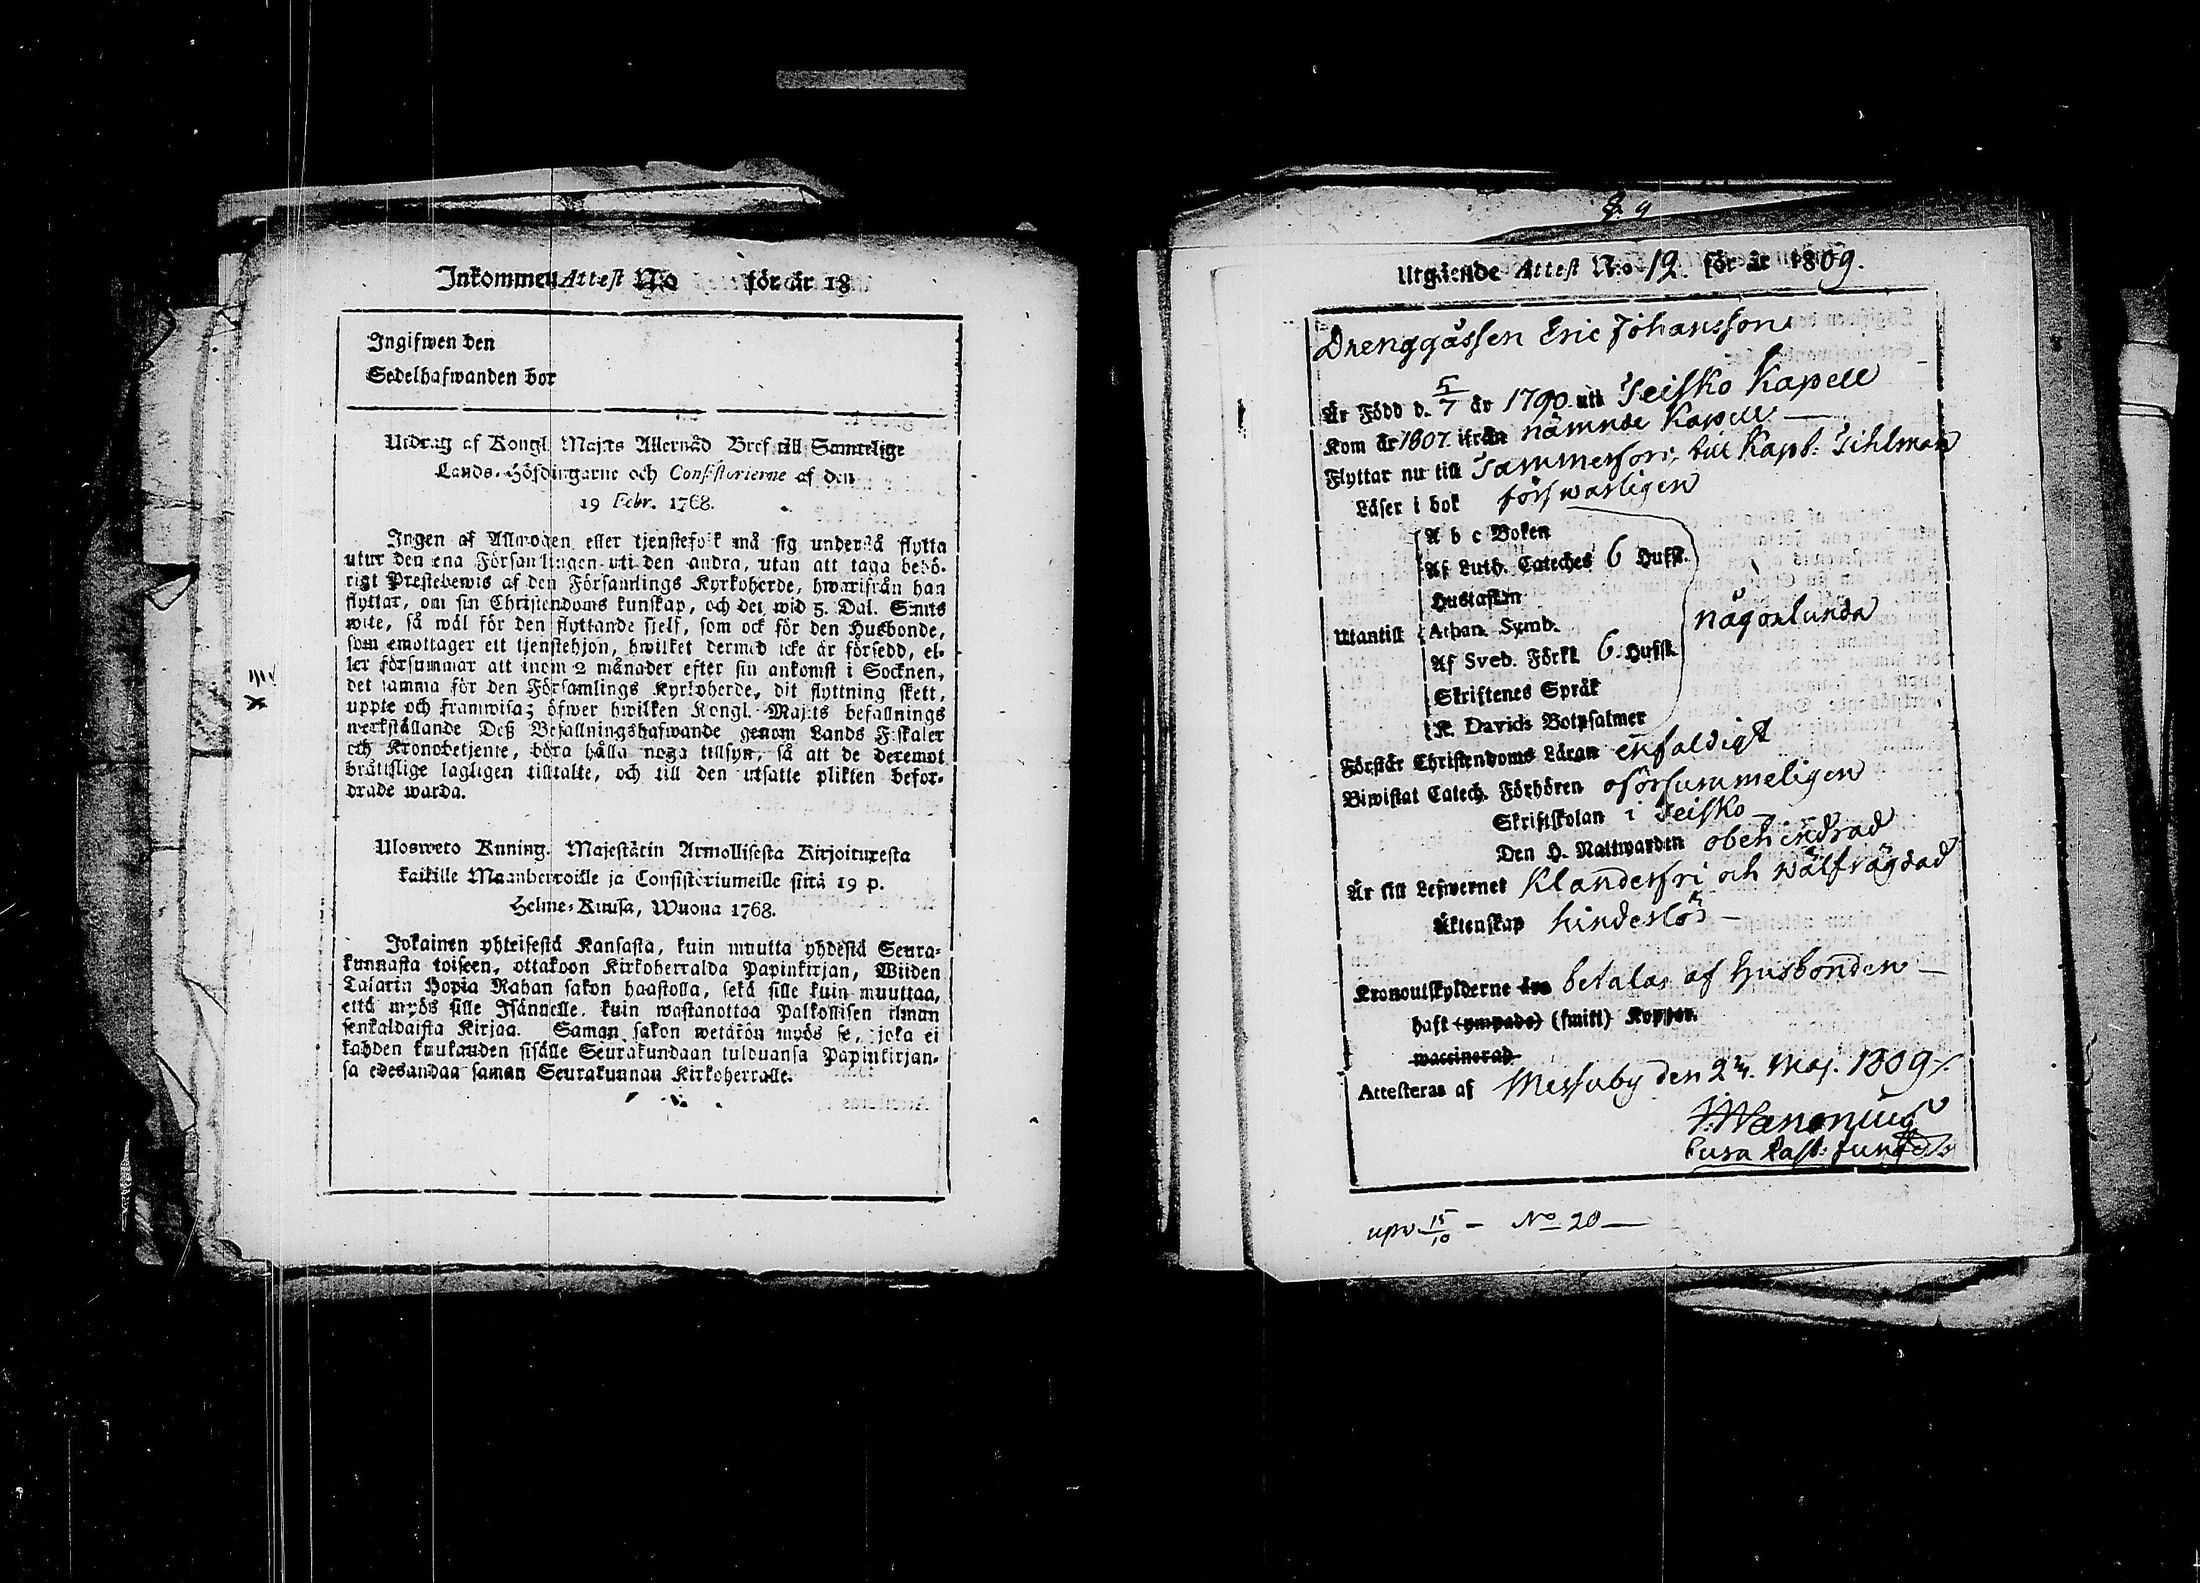 Inkommen Attest N:o för år 18
Ingifwen den
Sedelhafwanden bor
Utdrag af Kongl. Maj:ts Allernåd Bref till Samtelige
Lands-Höfdingarne och Consistorierne af den
19 Febr. 1768.
Ingen af Allmogen eller tjenstefolk må sig understå flytta
utur den ena Församlingen uti den andra, utan att taga behö-
rigt Prestebewis af den Församlings Kyrkoherde, hwarifrån han
flyttar, om sin Christendoms kunskap, och det wid 5. Dal. S:mts
wite, så wäl för den flyttande sjelf, som ock för den Husbonde,
som emottager ett tjenstehjon, hwilket dermed icke är försedd, el-
ler försummar att inom 2 månader efter sin ankomst i Socknen,
det samma för den Församlings Kyrkoherde, dit flyttning skett,
uppte och framwisa; öfwer hwilken Kongl. Maj:ts befallnings
werkställande Deß Befallningshafwande genom Lands Fiskaler
och Kronobetjente, böra hålla noga tillsyn, så att de deremot
bråttslige lagligen tilltalte, och till den utsatte plikten befor-
drade warda.
Ulosweto Kuning. Majestätin Armollisesta Kirjoituxesta
kaikille Maanherroille ja Consistoriumeille siitä 19 p.
Helme-Kuusa, Wuona 1768.
Jokainen yhteisestä Kansasta, kuin muutta yhdestä Seura-
kunnasta toiseen, ottakoon Kirkoherralda Papinkirjan, Wiiden
Talarin Hopia Rahan sakon haastolla, sekä sille kuin muuttaa,
että myös sille Isännelle, kuin wastanottaa Palkollisen ilman
senkaldaista Kirjaa. Saman sakon wetäkön myös se, joka ei
kahden kuukauden sisälle Seurakundaan tulduansa Papinkirjan-
sa edesandaa saman Seurakunnan Kirkoherralle.
Utgående Attest N:o 12. för år 1809.
Drenggåssen Eric Johansson
Är Född d. 5/7 år 1790. uti Teisko Kapell
Kom år 1807. ifrån nämnde Kapell
Flyttar nu till Tammerfors, till Kapt: Tihlman
Läser i bok förswarligen
A b c Boken
Af Luth. Cateches 6 Hufst.
Hustaflan
Utantill Athan. Symb. någorlunda
Af Sveb. Förkl. 6. Hufst.
Skriftenes Språk
K. Davids Botpsalmer
Förstår Christendoms Läran enfaldigt
Biwistat Catech. Förhören oförsummeligen
Skriftskolan i Teisko
Den H. Nattwarden obehindrad
Är till Lefwernet Klanderfri och wälfrägdad
Äktenskap hinderlös
Kronoutskylderne äro betalas af Husbonden
haft (ympade) (smitt) Koppor.
waccinerad
Attesteras af Messuby den 2 Maj. 1809
J. Wanonius
Cura Past:
upw 15/10 - No 20